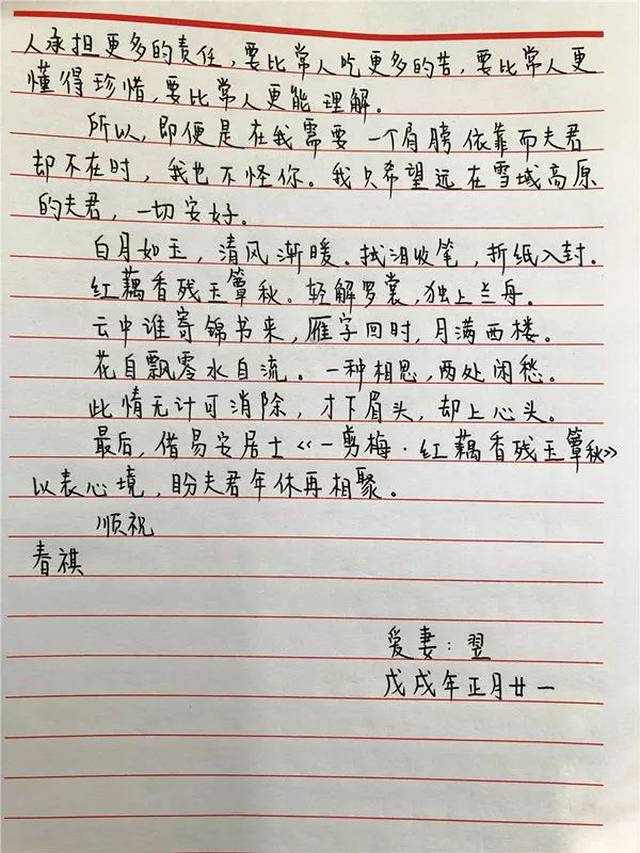 人承担更多的责任，要比常人吃更多的苦，要比常人更
懂得珍惜，要比常人更能理解。
所以，即便是在我需要一个肩膀依靠而夫君
却不在时，我也不怪你。我只希望远在雪域高原
的夫君，一切安好。
白月如玉，清风渐暖。拭泪收笔，折纸入封。
红藕香残玉簟秋。轻解罗裳，独上兰舟。
云中谁寄锦书来，雁字回时，月满西楼。
花自飘零水自流。一种相思，两处闲愁。
此情无计可消除，才下眉头，却上心头。
最后，借易安居士《一剪梅·红藕香残玉簟秋》
以表心境，盼夫君年休再相聚。
顺祝
春祺
爱妻：翌
戊戌年正月廿一